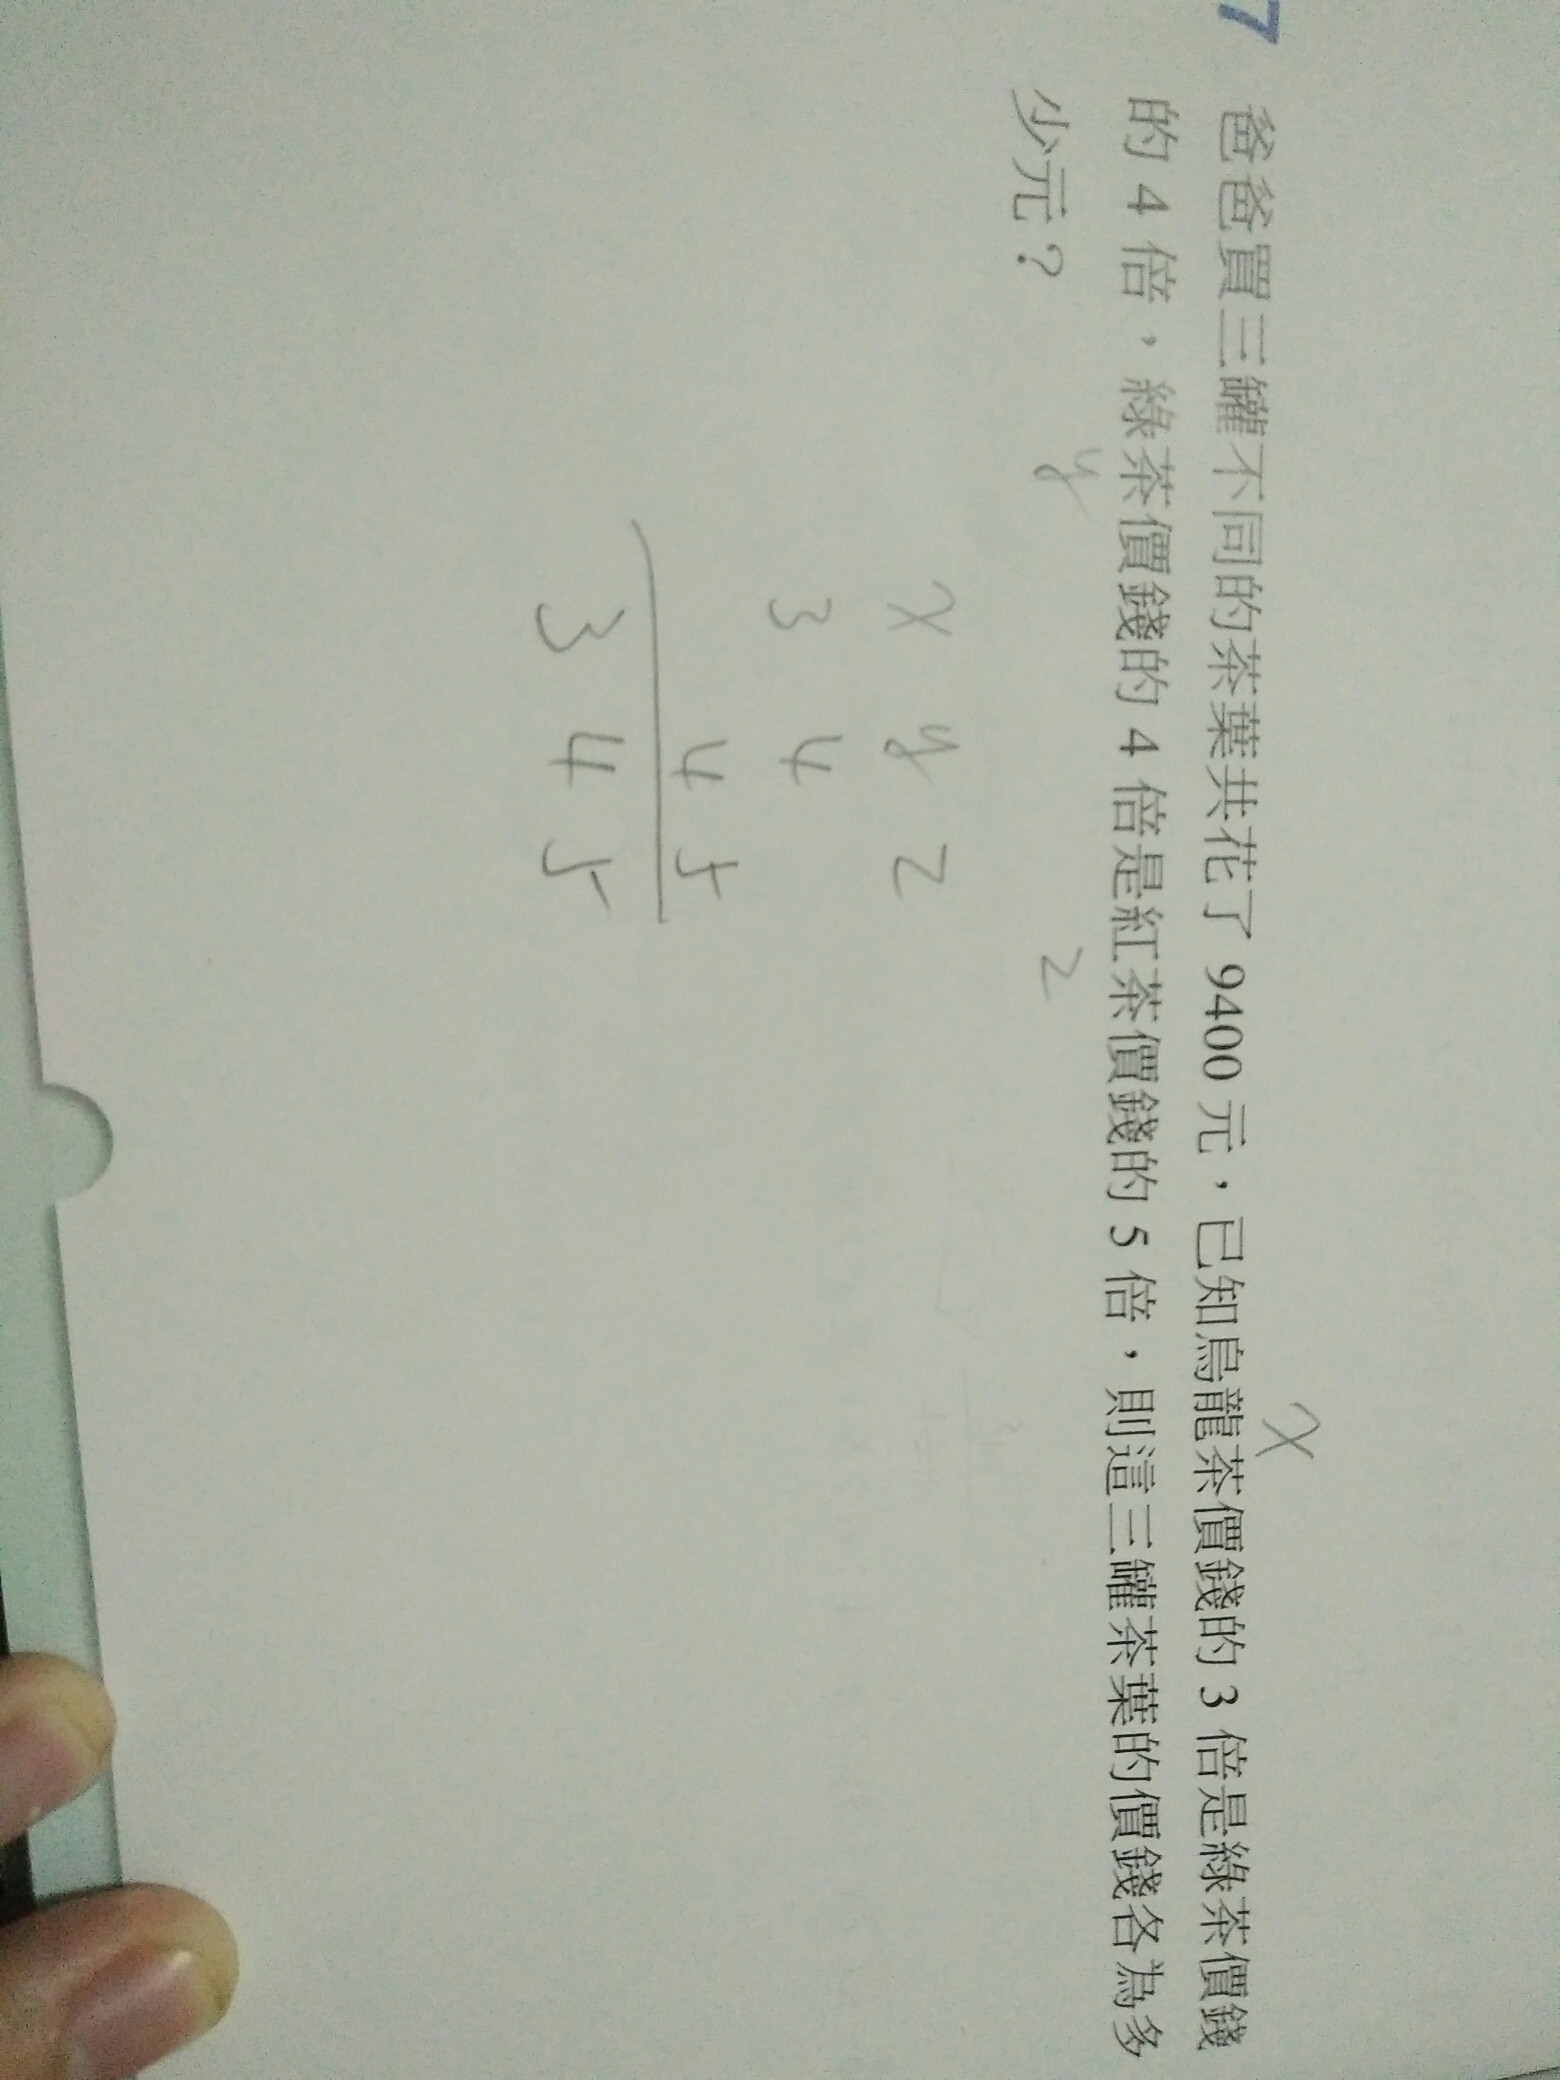 7 爸爸買三罐不同的茶葉共花了 9400 元，已知烏龍茶價錢的 3 倍是綠茶價錢
的 4 倍，綠茶價錢的 4 倍是紅茶價錢的 5 倍，則這三罐茶葉的價錢各為多
少元？
x
y
z
x y z
3 4
4 5
3 4 5